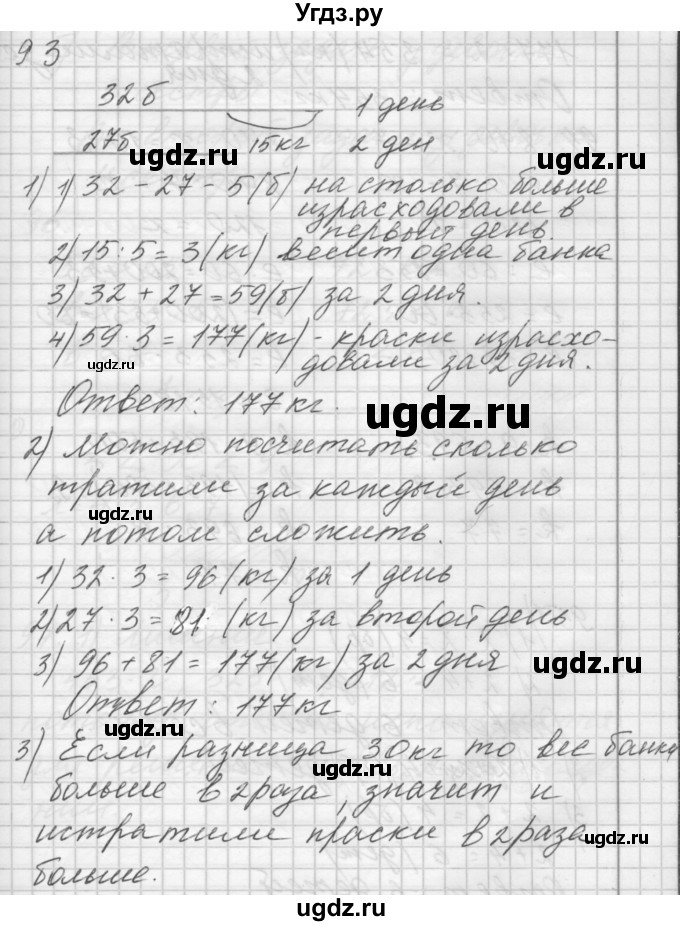 Угдз.ру
93
32б
1 день
27б 15кг 2 ден
ugdz.ru
1) 1) 32 - 27 - 5 (б) на столько больше
израсходовали в
первый день.
2) 15 : 5 = 3 (кг) весит одна банка
3) 32 + 27 = 59 (б) за 2 дня.
4) 59 · 3 = 177 (кг) - краски израсхо-
довали за 2 дня.
ugdz.ru
Ответ: 177 кг.
ugdz.ru
2) Можно посчитать сколько
тратили за каждый день
ugdz.ru
а потом сложить.
1) 32 · 3 = 96 (кг) за 1 день
2) 27 · 3 = 81 (кг) за второй день
3) 96 + 81 = 177 (кг) за 2 дня
ugdz.ru
Ответ: 177 кг
3) Если разница 30 кг то вес банки
ugdz.ru
больше в 2 раза, значит и
истратили краски в 2 раза
ugdz.ru
больше.
ugdz.ru